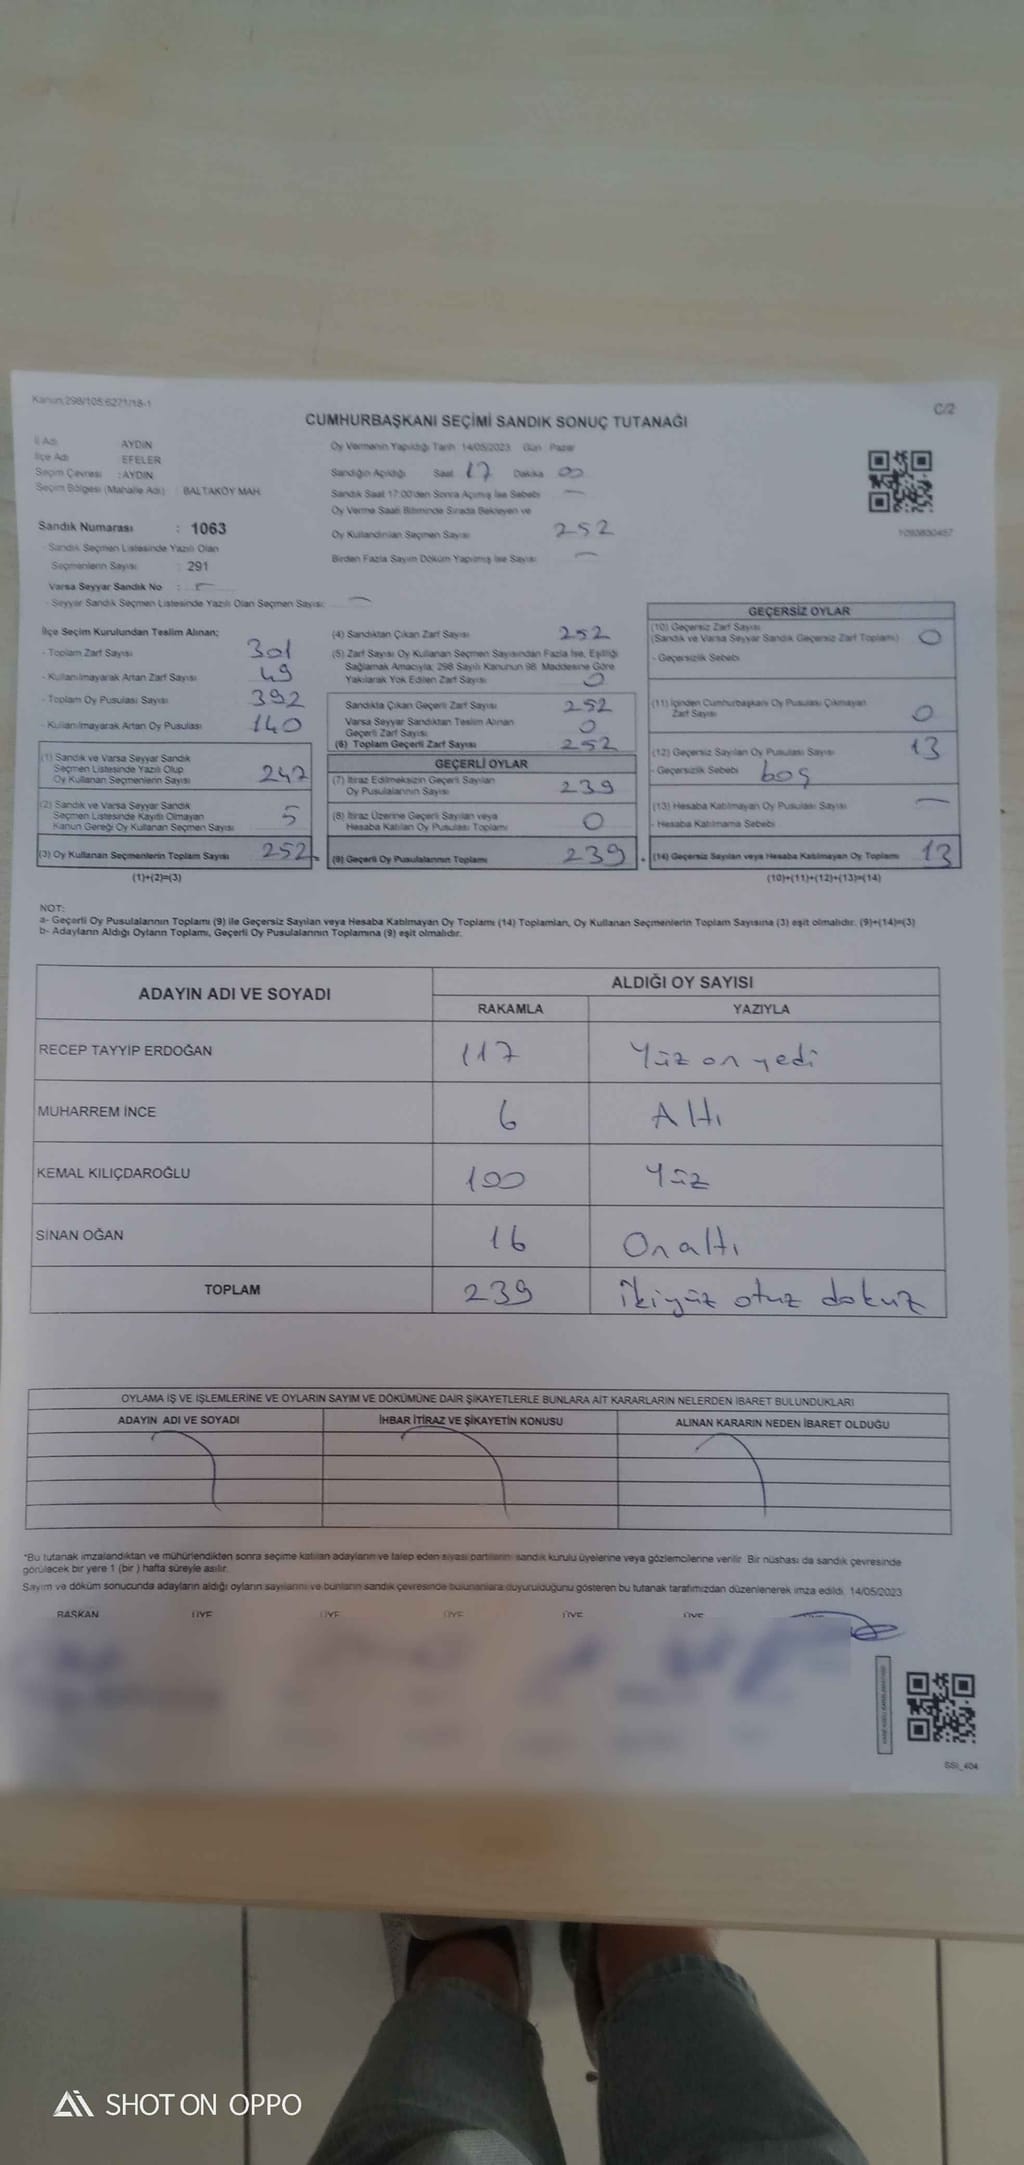 Kanun:298/105;6271/18-1
C/2
CUMHURBAŞKANI SEÇİMİ SANDIK SONUÇ TUTANAĞI
İl Adı AYDIN
İlçe Adı EFELER
Seçim Çevresi : AYDIN
Seçim Bölgesi (Mahalle Adı) : BALTAKÖY MAH.
Sandık Numarası : 1063
- Sandık Seçmen Listesinde Yazılı Olan
Seçmenlerin Sayısı : 291
Varsa Seyyar Sandık No : –
- Seyyar Sandık Seçmen Listesinde Yazılı Olan Seçmen Sayısı: –
Oy Vermenin Yapıldığı Tarih :14/05/2023 Gün : Pazar
Sandığın Açıldığı Saat 17 Dakika 00
Sandık Saat 17:00'den Sonra Açılmış İse Sebebi –
Oy Verme Saati Bitiminde Sırada Bekleyen ve
Oy Kullandırılan Seçmen Sayısı 252
Birden Fazla Sayım Döküm Yapılmış İse Sayısı –
İlçe Seçim Kurulundan Teslim Alınan;
- Toplam Zarf Sayısı 301
- Kullanılmayarak Artan Zarf Sayısı 49
- Toplam Oy Pusulası Sayısı 392
- Kullanılmayarak Artan Oy Pusulası 140
(1) Sandık ve Varsa Seyyar Sandık
Seçmen Listesinde Yazılı Olup
Oy Kullanan Seçmenlerin Sayısı 247
(2) Sandık ve Varsa Seyyar Sandık
Seçmen Listesinde Kayıtlı Olmayan
Kanun Gereği Oy Kullanan Seçmen Sayısı 5
(3) Oy Kullanan Seçmenlerin Toplam Sayısı 252
(1)+(2)=(3)
(4) Sandıktan Çıkan Zarf Sayısı 252
(5) Zarf Sayısı Oy Kullanan Seçmen Sayısından Fazla İse, Eşitliği
Sağlamak Amacıyla; 298 Sayılı Kanunun 98. Maddesine Göre
Yakılarak Yok Edilen Zarf Sayısı 0
Sandıkta Çıkan Geçerli Zarf Sayısı 252
Varsa Seyyar Sandıktan Teslim Alınan
Geçerli Zarf Sayısı 0
(6) Toplam Geçerli Zarf Sayısı 252
GEÇERLİ OYLAR
(7) İtiraz Edilmeksizin Geçerli Sayılan
Oy Pusulalarının Sayısı 239
(8) İtiraz Üzerine Geçerli Sayılan veya
Hesaba Katılan Oy Pusulası Toplamı 0
(9) Geçerli Oy Pusulalarının Toplamı 239
GEÇERSİZ OYLAR
(10) Geçersiz Zarf Sayısı
(Sandık ve Varsa Seyyar Sandık Geçersiz Zarf Toplamı) 0
- Geçersizlik Sebebi
(11) İçinden Cumhurbaşkanı Oy Pusulası Çıkmayan
Zarf Sayısı 0
(12) Geçersiz Sayılan Oy Pusulası Sayısı 13
- Geçersizlik Sebebi boş
(13) Hesaba Katılmayan Oy Pusulası Sayısı –
- Hesaba Katılmama Sebebi
(14) Geçersiz Sayılan veya Hesaba Katılmayan Oy Toplamı 13
(10)+(11)+(12)+(13)=(14)
NOT:
a- Geçerli Oy Pusulalarının Toplamı (9) ile Geçersiz Sayılan veya Hesaba Katılmayan Oy Toplamı (14) Toplamları, Oy Kullanan Seçmenlerin Toplam Sayısına (3) eşit olmalıdır. (9)+(14)=(3)
b- Adayların Aldığı Oyların Toplamı, Geçerli Oy Pusulalarının Toplamına (9) eşit olmalıdır.
ADAYIN ADI VE SOYADI
ALDIĞI OY SAYISI
RAKAMLA YAZIYLA
RECEP TAYYİP ERDOĞAN 117 Yüz on yedi
MUHARREM İNCE 6 Altı
KEMAL KILIÇDAROĞLU 100 Yüz
SİNAN OĞAN 16 Onaltı
TOPLAM 239 ikiyüz otuz dokuz
OYLAMA İŞ VE İŞLEMLERİNE VE OYLARIN SAYIM VE DÖKÜMÜNE DAİR ŞİKAYETLERLE BUNLARA AİT KARARLARIN NELERDEN İBARET BULUNDUKLARI
ADAYIN ADI VE SOYADI İHBAR İTİRAZ VE ŞİKAYETİN KONUSU ALINAN KARARIN NEDEN İBARET OLDUĞU
*Bu tutanak imzalandıktan ve mühürlendikten sonra seçime katılan adayların ve talep eden siyasi partilerin sandık kurulu üyelerine veya gözlemcilerine verilir. Bir nüshası da sandık çevresinde
görülecek bir yere 1 (bir ) hafta süreyle asılır.
Sayım ve döküm sonucunda adayların aldığı oyların sayılarını ve bunların sandık çevresinde bulunanlara duyurulduğunu gösteren bu tutanak tarafımızdan düzenlenerek imza edildi. 14/05/2023
BAŞKAN ÜYE ÜYE ÜYE ÜYE ÜYE
SSI_404
SHOT ON OPPO